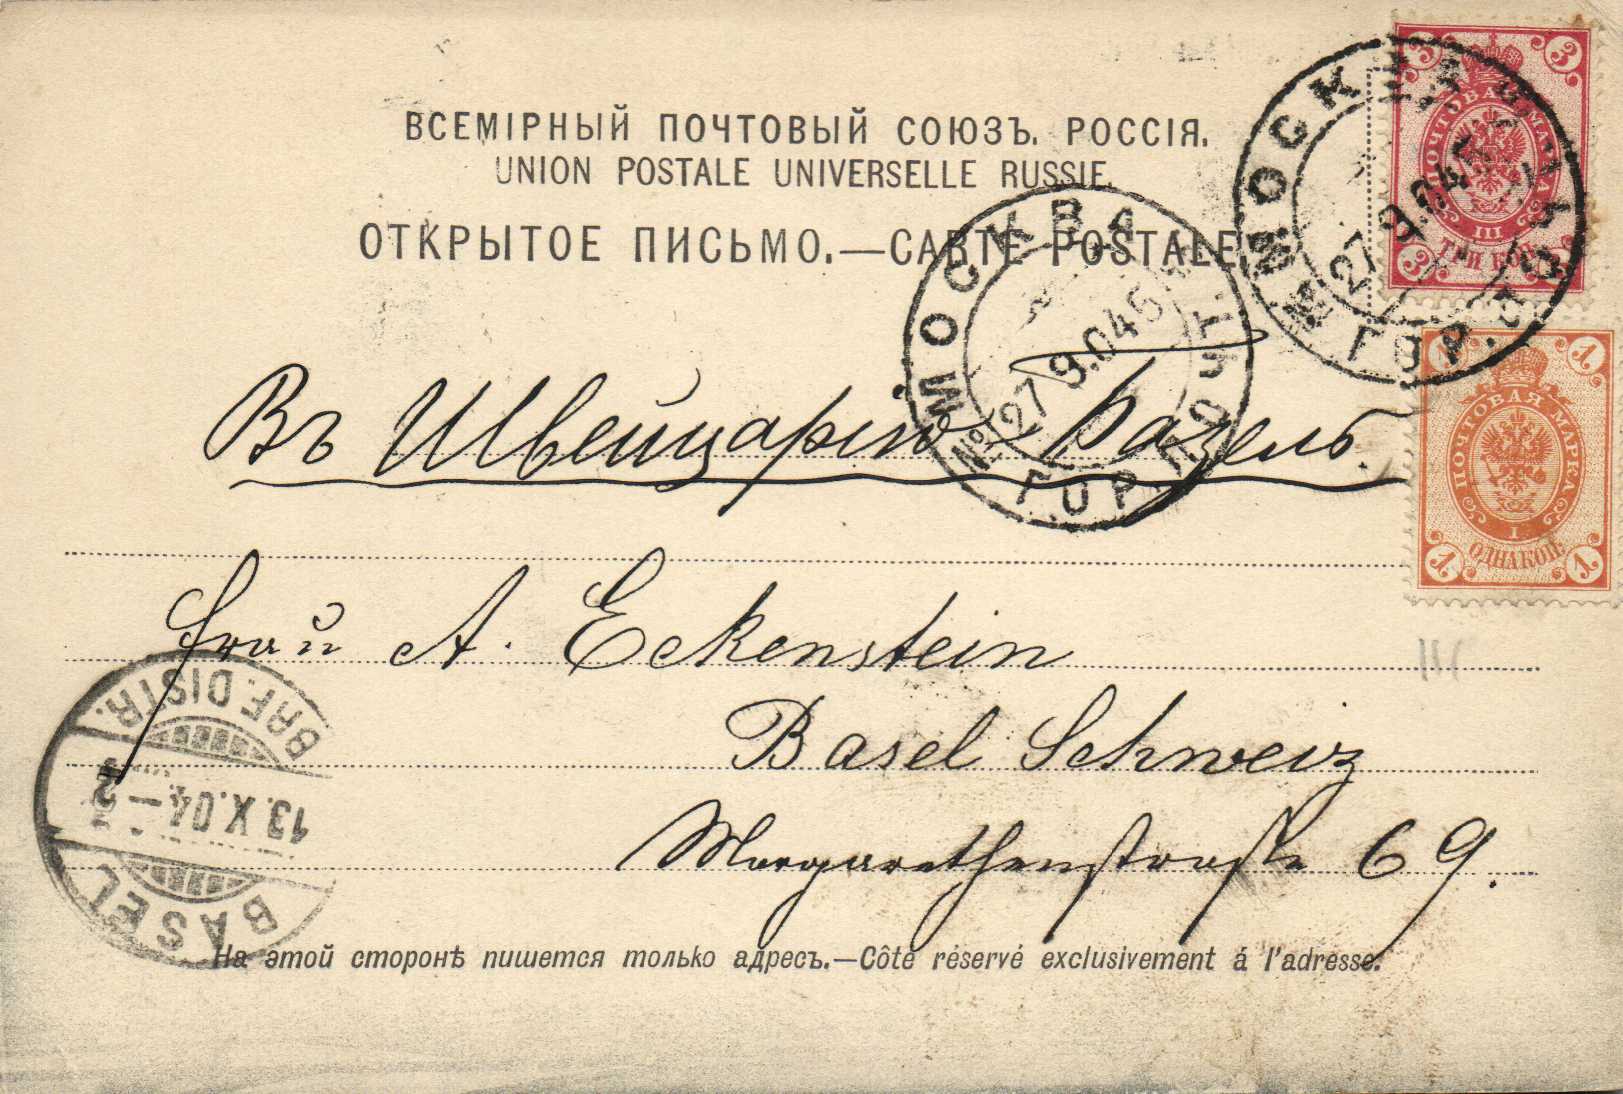 ВСЕМІРНЫЙ ПОЧТОВЫЙ СОЮЗЪ. РОССІЯ.
UNION POSTALE UNIVERSELLE RUSSIE.
ОТКРЫТОЕ ПИСЬМО.—CARTE POSTALE.
3 3
ПОЧТОВАЯ МАРКА
III
ТРИ КОП.
3 3
МОСКВА
27 9.04
№ ГОР. ПОЧТ.
МОСКВА
27 9.04
№ ГОР. ПОЧТ.
1 1
ПОЧТОВАЯ МАРКА
I
ОДНА КОП.
1 1
Въ Швейцарію Базель.
Frau A. Eckenstein
Basel Schweiz
Margarethenstrasse 69.
BRF. DISTR.
13.X.04.—2
BASEL
На этой сторонѣ пишется только адресъ.—Côté réservé exclusivement á l'adresse.